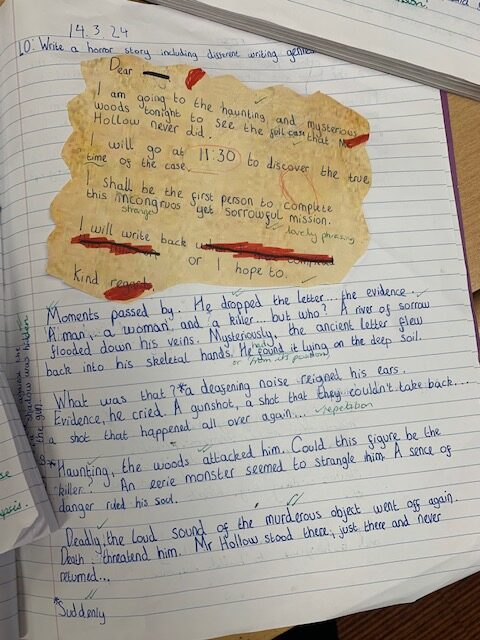 14.3.24
LO: Write a horror story including different writing genres
Dear
I am going to the haunting and mysterious
woods tonight to see the full case that Mr
Hollow never did.
I will go at 11:30 to discover the true
time of the case.
I shall be the first person to complete
this incongruos yet sorrowful mission.
strange
lovely phrasing
I will write back
or I hope to.
Kind regards
Moments passed by. He dropped the letter... the evidence.
A man, a woman and a killer... but who? A river of sorrow
flooded down his veins. Mysteriously, the ancient letter flew
back into his skeletal hands. He found it lying on the deep soil.
had
or from its position
What was that? *a deafening noise reigned his ears.
Evidence, he cried. A gunshot, a shot that they couldn't take back...
a shot that happened all over again... repetation
*Haunting, the woods attacked him. Could this figure be the
killer? An eerie monster seemed to strangle him. A sence of
danger ruled his soul.
Deadly, the loud sound of the murderous object went off again.
Death threatend him. Mr Hollow stood there, just there and never
returned...
*Suddenly
shadow was hidden
to the gun